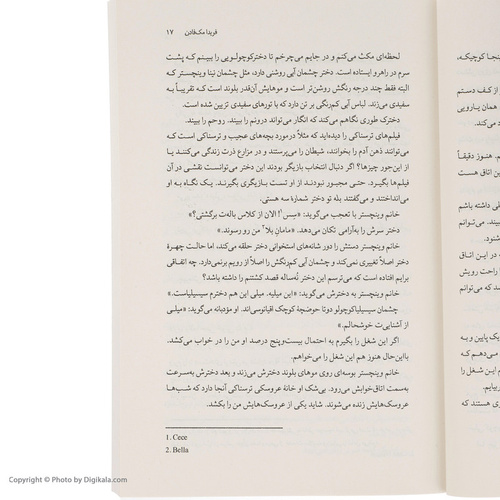 فریدا مک‌فادن ۱۷
لحظه‌ای مکث می‌کنم و در جایم می‌چرخم تا دخترکوچولویی را ببینم که پشت
سرم در راهرو ایستاده است. دختر چشمان آبی روشنی دارد، مثل چشمان نینا وینچستر که
البته فقط چند درجه رنگش روشن‌تر است و موهایش آن‌قدر بلوند است که تقریباً به
سفیدی می‌زند. لباس آبی کم‌رنگی بر تن دارد که با تورهای سفیدی تزیین شده است.
دخترک طوری نگاهم می‌کند که انگار می‌تواند درونم را ببیند. روحم را ببیند.
فیلم‌های ترسناکی را دیده‌اید که مثلاً درمورد بچه‌های عجیب و ترسناکی است که
می‌توانند ذهن آدم را بخوانند، شیطان را می‌پرستند و در مزارع ذرت زندگی می‌کنند یا
از این‌جور چیزها؟ اگر دنبال انتخاب بازیگر بودند این دختر می‌توانست نقشی در آن
فیلم‌ها بگیرد. حتی مجبور نبودند از او تست بازیگری بگیرند. یک نگاه به او
می‌انداختند و می‌گفتند بله تو دختر شمارهٔ سه هستی.
خانم وینچستر با تعجب می‌گوید: «سِس۱! الان از کلاس باله‌ت برگشتی؟»
دختر سرش را به‌آرامی تکان می‌دهد. «مامانِ بلا۲ من رو رسوند.»
خانم وینچستر دستش را دور شانه‌های استخوانی دختر حلقه می‌کند، اما حالت چهرهٔ
دختر اصلاً تغییری نمی‌کند و چشمان آبی کم‌رنگش را اصلاً از رویم برنمی‌دارد. چه اتفاقی
برایم افتاده است که می‌ترسم این دختر نُه‌ساله قصد کشتنم را داشته باشد؟
خانم وینچستر به دخترش می‌گوید: «این میلیه. میلی این هم دخترم سیسیلیاست.»
چشمان سیسیلیا کوچولو دوتا حوضچهٔ کوچک اقیانوسی‌اند. او مؤدبانه می‌گوید: «میلی
از آشنایی‌ت خوشحالم.»
اگر این شغل را بگیرم به احتمال بیست‌وپنج درصد او من را در خواب می‌کشد.
بااین‌حال هنوز هم این شغل را می‌خواهم.
خانم وینچستر بوسه‌ای روی موهای بلوند دخترش می‌زند و بعد دخترش به‌سرعت
به‌سمت اتاق‌خوابش می‌رود. بی‌شک او خانهٔ عروسکی ترسناکی آنجا دارد که شب‌ها
عروسک‌هایش زنده می‌شوند. شاید یکی از عروسک‌هایش من را بکشد.
1. Cece
2. Bella
نجا کوچیکه،
از کف دستم
همان پارویی
د می‌کند.
م. هنوز دقیقاً
این اتاق هست
ظی داشته باشم
ببیند. می‌توانم
شنود.
ه در این اتاق
راحت رویش
د که می‌توانم
یک پایین و به
می‌دهم که
م این شغل را
بیایم.
ری هستند که
Copyright © Photo by Digikala.com